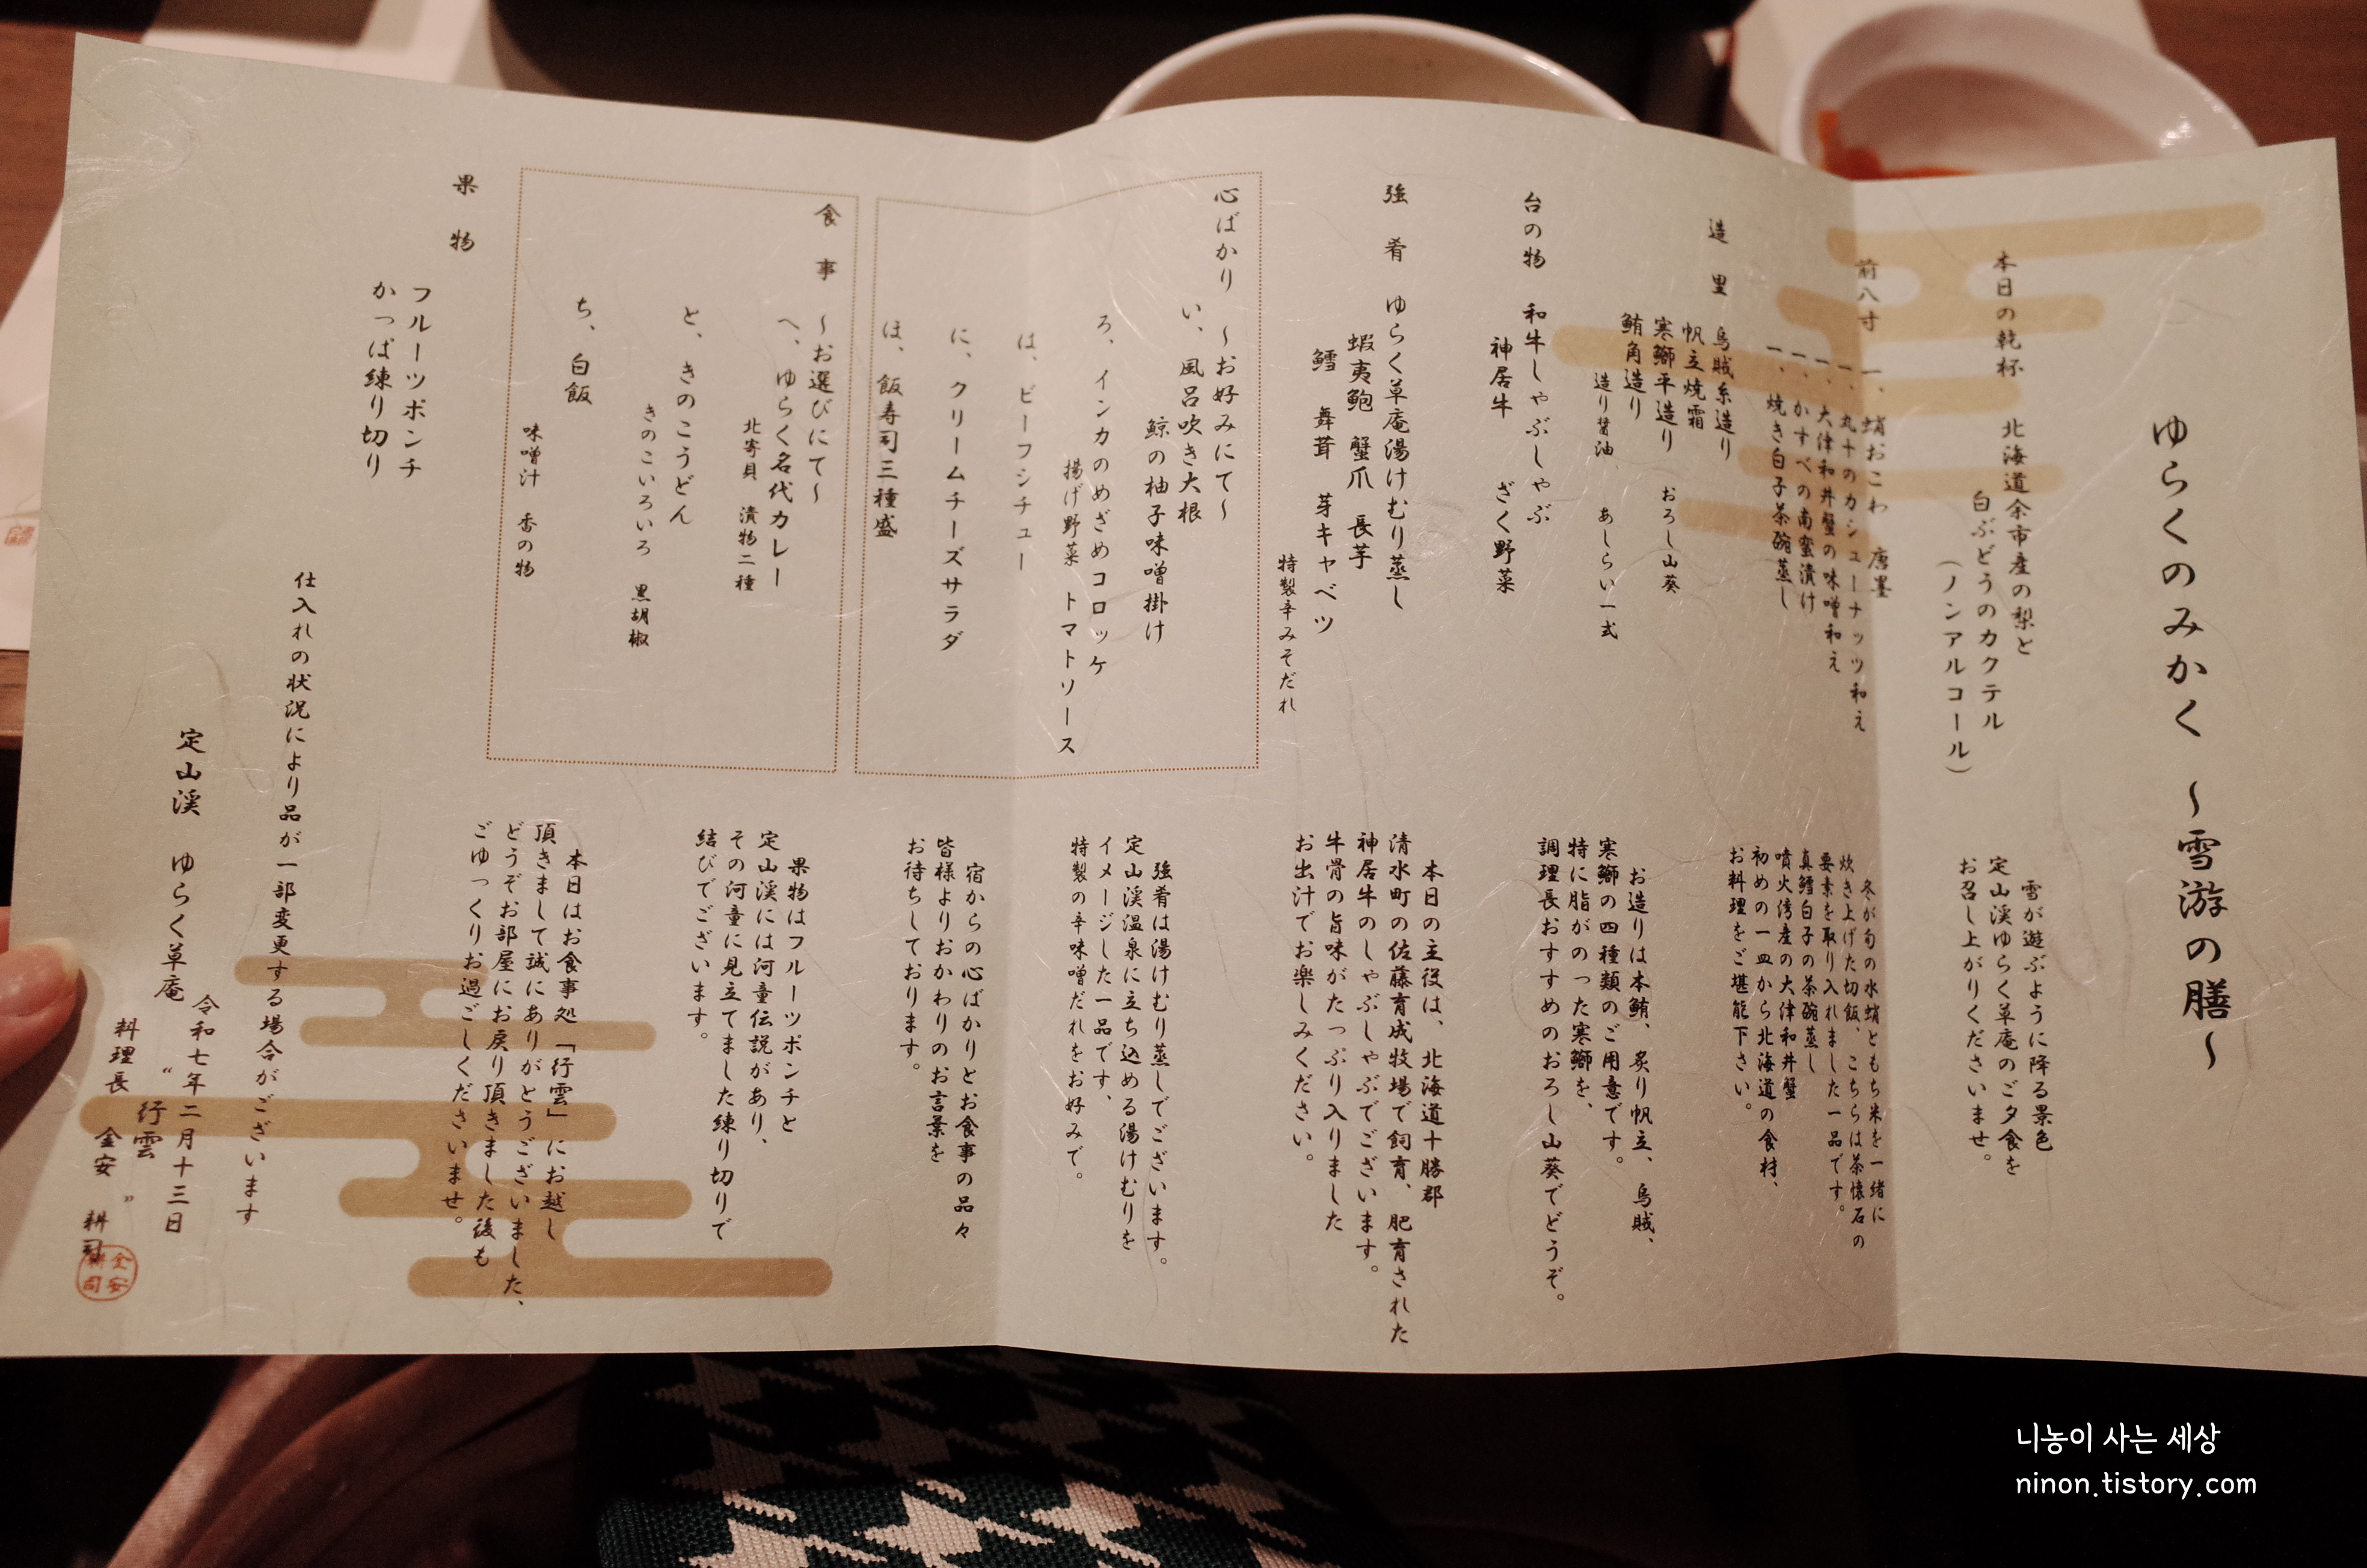 ゆらくのみかく 〜雪游の膳〜
本日の乾杯 北海道余市産の梨と
白ぶどうのカクテル
（ノンアルコール）
雪が遊ぶように降る景色
定山渓ゆらく草庵のご夕食を
お召し上がりくださいませ。
前八寸 一、蛸おこわ 唐墨
一、丸十のカシューナッツ和え
一、大津和井蟹の味噌和え
一、かすべの南蛮漬け
一、焼き白子茶碗蒸し
冬が旬の水蛸ともち米を一緒に
炊き上げた切飯、こちらは茶懐石の
要素を取り入れました一品です。
真鱈白子の茶碗蒸し
噴火湾産の大津和井蟹
初めの一皿から北海道の食材、
お料理をご堪能下さい。
造里 烏賊糸造り
帆立焼霜
寒鰤平造り おろし山葵
鮪角造り
造り醤油 あしらい一式
お造りは本鮪、炙り帆立、烏賊、
寒鰤の四種類のご用意です。
特に脂がのった寒鰤を、
調理長おすすめのおろし山葵でどうぞ。
台の物 和牛しゃぶしゃぶ
神居牛 ざく野菜
本日の主役は、北海道十勝郡
清水町の佐藤育成牧場で飼育、肥育された
神居牛のしゃぶしゃぶでございます。
牛骨の旨味がたっぷり入りました
お出汁でお楽しみください。
強肴 ゆらく草庵湯けむり蒸し
蝦夷鮑 蟹爪 長芋
鱈 舞茸 芽キャベツ
特製辛みそだれ
強肴は湯けむり蒸しでございます。
定山渓温泉に立ち込める湯けむりを
イメージした一品です、
特製の辛味噌だれをお好みで。
心ばかり 〜お好みにて〜
い、風呂吹き大根
鯨の柚子味噌掛け
ろ、インカのめざめコロッケ
揚げ野菜 トマトソース
は、ビーフシチュー
に、クリームチーズサラダ
ほ、飯寿司三種盛
宿からの心ばかりとお食事の品々
皆様よりおかわりのお言葉を
お待ちしております。
食事 〜お選びにて〜
へ、ゆらく名代カレー
北寄貝 漬物二種
と、きのこうどん
きのこいろいろ 黒胡椒
ち、白飯
味噌汁 香の物
果物はフルーツポンチと
定山渓には河童伝説があり、
その河童に見立てました練り切りで
結びでございます。
果物 フルーツポンチ
かっぱ練り切り
本日はお食事処「行雲」にお越し
頂きまして誠にありがとうございました、
どうぞお部屋にお戻り頂きました後も
ごゆっくりお過ごしくださいませ。
仕入れの状況により品が一部変更する場合がございます
令和七年二月十三日
定山渓 ゆらく草庵
“行雲”
料理長 金安 耕司
金安
耕司
니농이 사는 세상
ninon.tistory.com